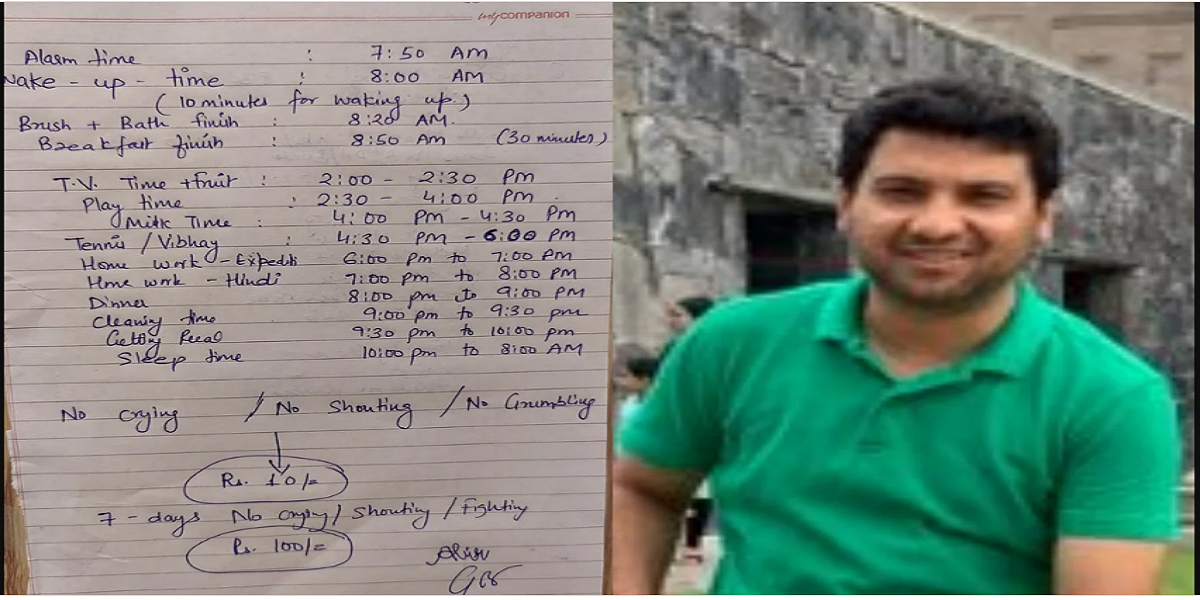 mycompanion
Alarm time : 7:50 AM
Wake - up - time : 8:00 AM
( 10 minutes for waking up.)
Brush + Bath finish : 8:20 AM.
Breakfast finish : 8:50 Am (30 minutes)
T.V. Time + fruit : 2:00 - 2:30 Pm
Play time : 2:30 - 4:00 Pm
Milk Time : 4:00 Pm - 4:30 Pm
Tennis / Vibhay : 4:30 Pm - 6:00 Pm
Home work - 6:00 Pm to 7:00 Pm
Home work - Hindi 7:00 pm to 8:00 pm
Dinner 8:00 pm to 9:00 PM
Cleaning time 9:00 pm to 9:30 pm
9:30 pm to 10:00 pm
Sleep time 10:00 pm to 8:00 AM
No Crying / No Shouting / No Grumbling
Rs. 10/=
7 - days No Crying / Shouting / Fighting
Rs. 100/=